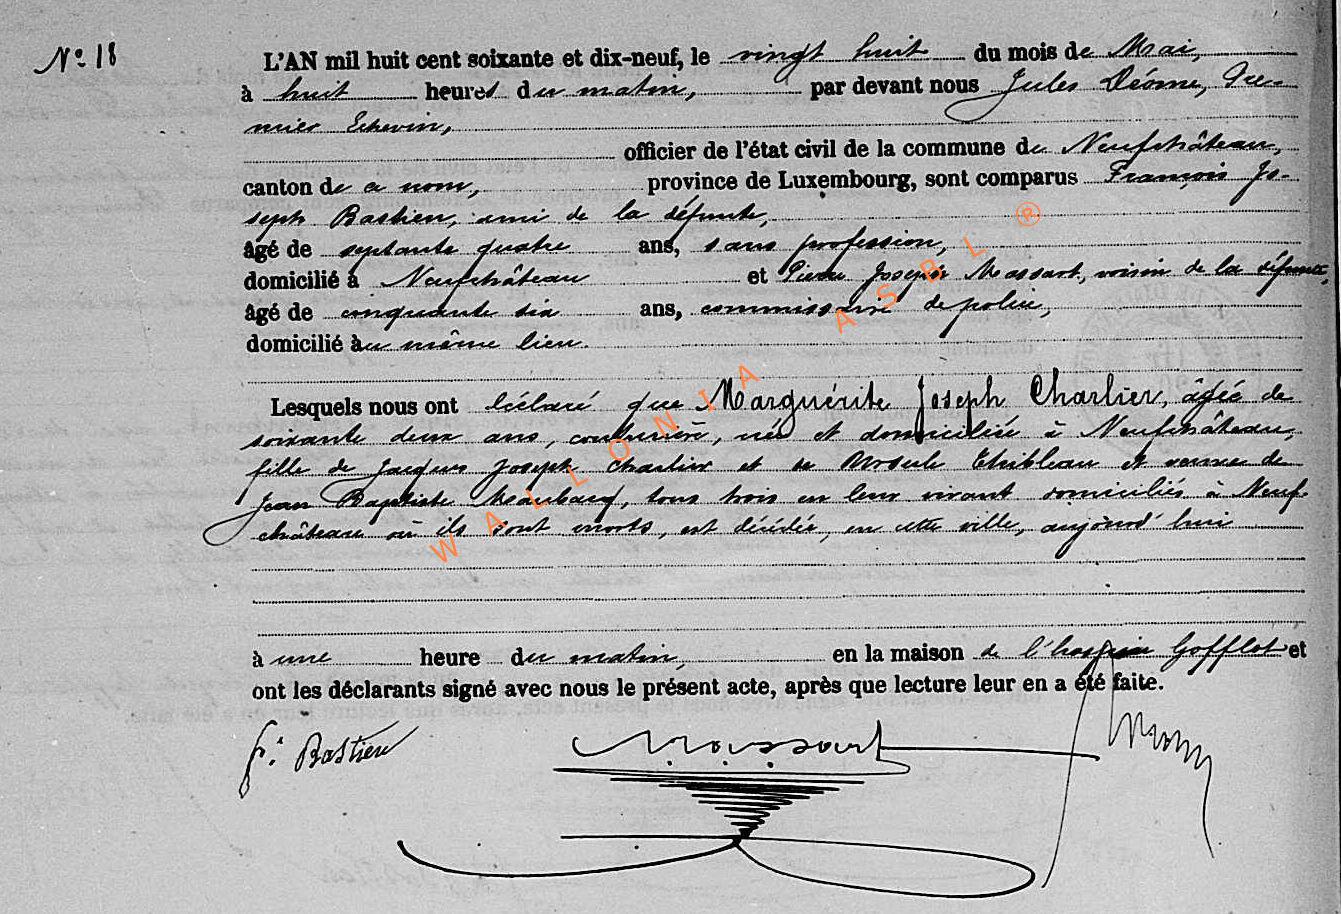 N° 18
L'AN mil huit cent soixante et dix-neuf, le vingt huit du mois de Mai,
à huit heures du matin, par devant nous Jules Déome, Pre-
mier Echevin,
officier de l'état civil de la commune de Neufchâteau,
canton de ce nom, province de Luxembourg, sont comparus François Jo-
seph Bastien, ami de la défunte,
âgé de septante quatre ans, sans profession,
domicilié à Neufchâteau et Pierre Joseph Massart, voisin de la défunte,
âgé de cinquante six ans, commissaire de police,
domicilié au même lieu.
Lesquels nous ont déclaré que Marguérite Joseph Charlier, âgée de
soixante deux ans, couturière, née et domiciliée à Neufchâteau,
fille de Jacques Joseph Charlier et de Thibleau et veuve de
Jean Baptiste Maubacq, tous trois en leur vivant domiciliés à Neuf-
château où ils sont morts, est décédée, en cette ville, aujourd'hui
à une heure du matin, en la maison de l'hospice Gofflot et
ont les déclarants signé avec nous le présent acte, après que lecture leur en a été faite.
f. Bastien Massart
WALLONIA ASBL ®